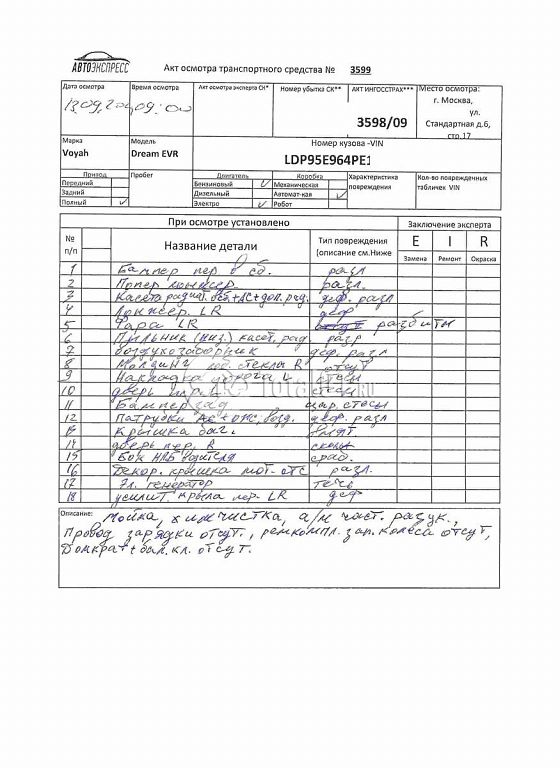 АВТОЭКСПРЕСС
Акт осмотра транспортного средства № 3599
Дата осмотра
Время осмотра
Акт осмотра эксперта СК*
Номер убытка СК**
АКТ ИНГОССТРАХ***
Место осмотра:
09:00
3598/09
г. Москва,
ул.
Стандартная д.6,
стр.17
Марка
Модель
Номер кузова -VIN
Voyah
Dream EVR
LDP95E964PE1
Привод
Пробег
Двигатель
Коробка
Характеристика повреждения
Кол-во поврежденных табличек VIN
Передний
Бензиновый
Механическая
Задний
Дизельный
Автомат-кая
Полный
Электро
Робот
При осмотре установлено
Заключение эксперта
№ п/п
Название детали
Тип повреждения
(описание см.Ниже
E I R
Замена Ремонт Окраска
1 Бампер пер в сб. разл
2 разл.
3 Касета радиат. осб.+АС+доп. рад. деф. разл
4 Лонжер. LR деф
5 Фара LR разбиты
6 Пыльник (низ.) касет. рад. разр
7 Воздухозаборник деф. разл
8 Молдинг лоб. стекла R отсут
9 Накладка порога L стесы
10 дверь пер. L стесы
11 Бампер зад цар. стесы
12 Патрубки АС + ОЖ, возд. деф. разл
13 Крышка баг.
14 дверь пер. R
15 Бок НПБ водителя сраб.
16 Декор. крышка мот. отс разл.
17 Эл. генератор течь
18 усилит крыла пер. LR деф
Описание: мойка, химчистка, а/м част. разук.,
Провод зарядки отсут., ремкомпл. зап. колеса отсут,
Домкрат + бал. кл. отсут.